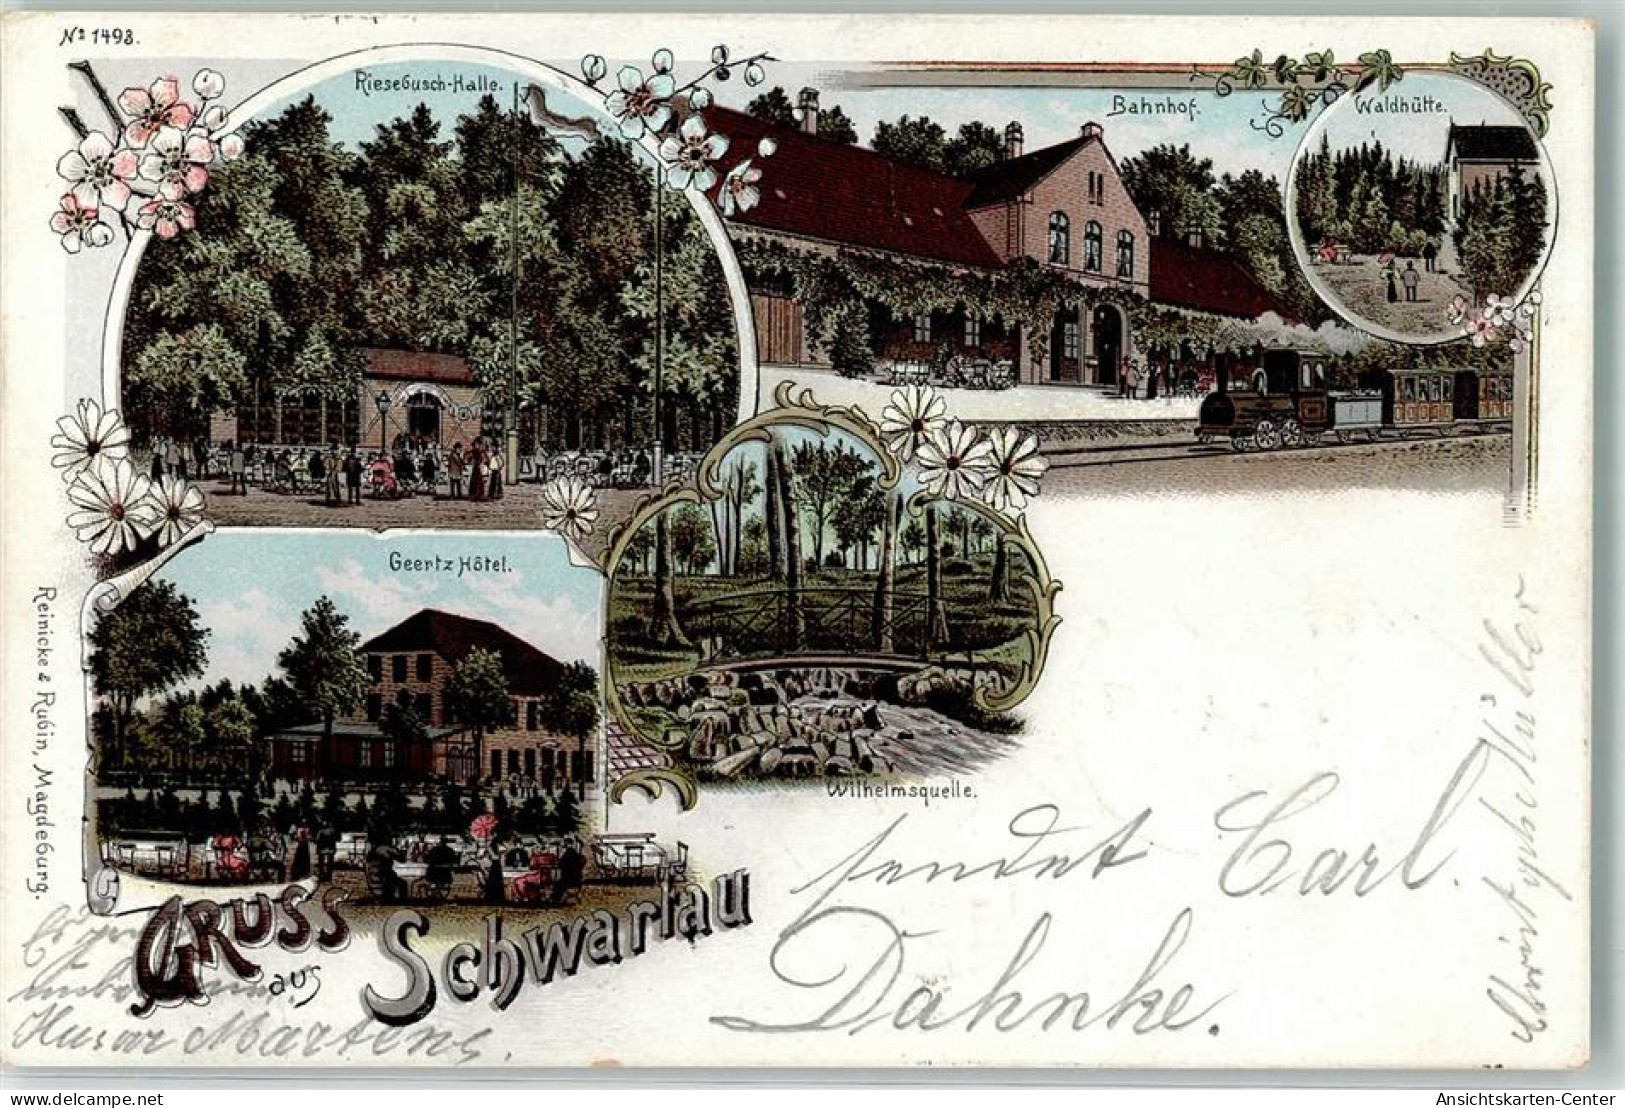 Nº 1498.
Riesebusch-Halle.
Bahnhof.
Waldhütte.
Geertz Hôtel.
Wilhelmsquelle.
Reinicke & Rubin, Magdeburg.
Gruss
aus
Schwartau
sendet Carl.
Dahnke.
Husar Martens.
Müller
Ansichtskarten-Center